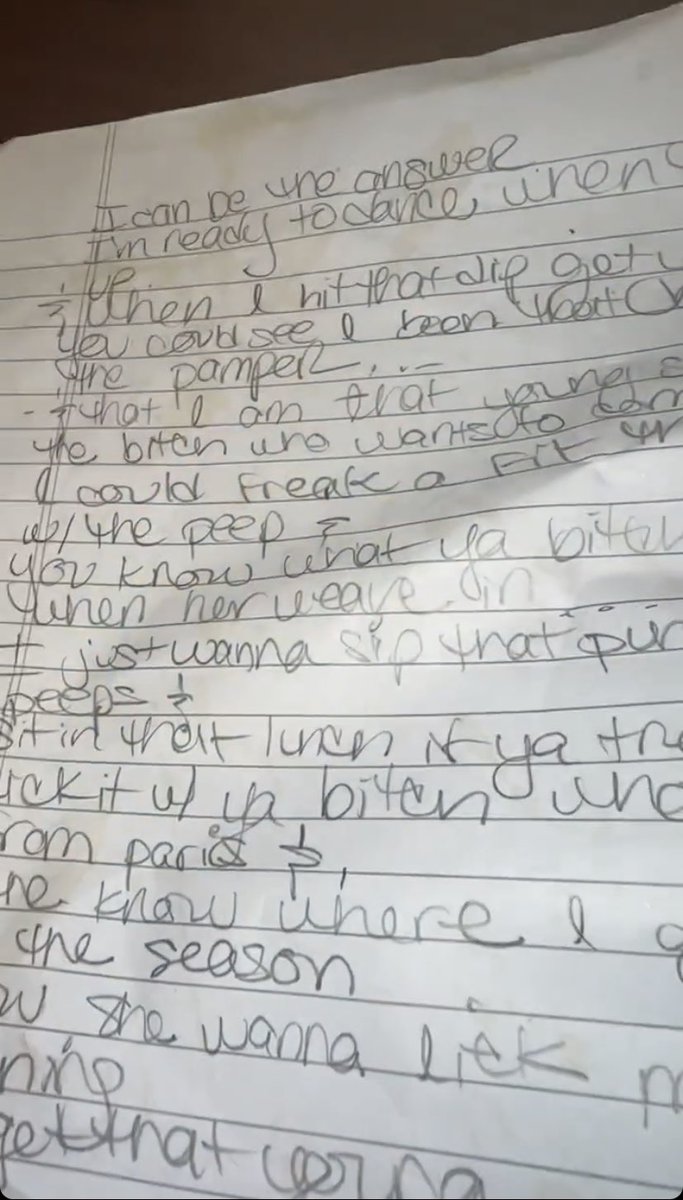 I can be the answer
I'm ready to dance, when
up
when I hit that dip get
You could see I been
the pamper...
that I am that young
the bitch who wants to
I could freak a fit
w/ the peep
you know what ya bitch
when her weave in
I just wanna sip that pur
peeps
sit in that lunch if ya
ick it w/ ya bitch who
rom paris
he know where I
the season
w she wanna lick
ning
get that